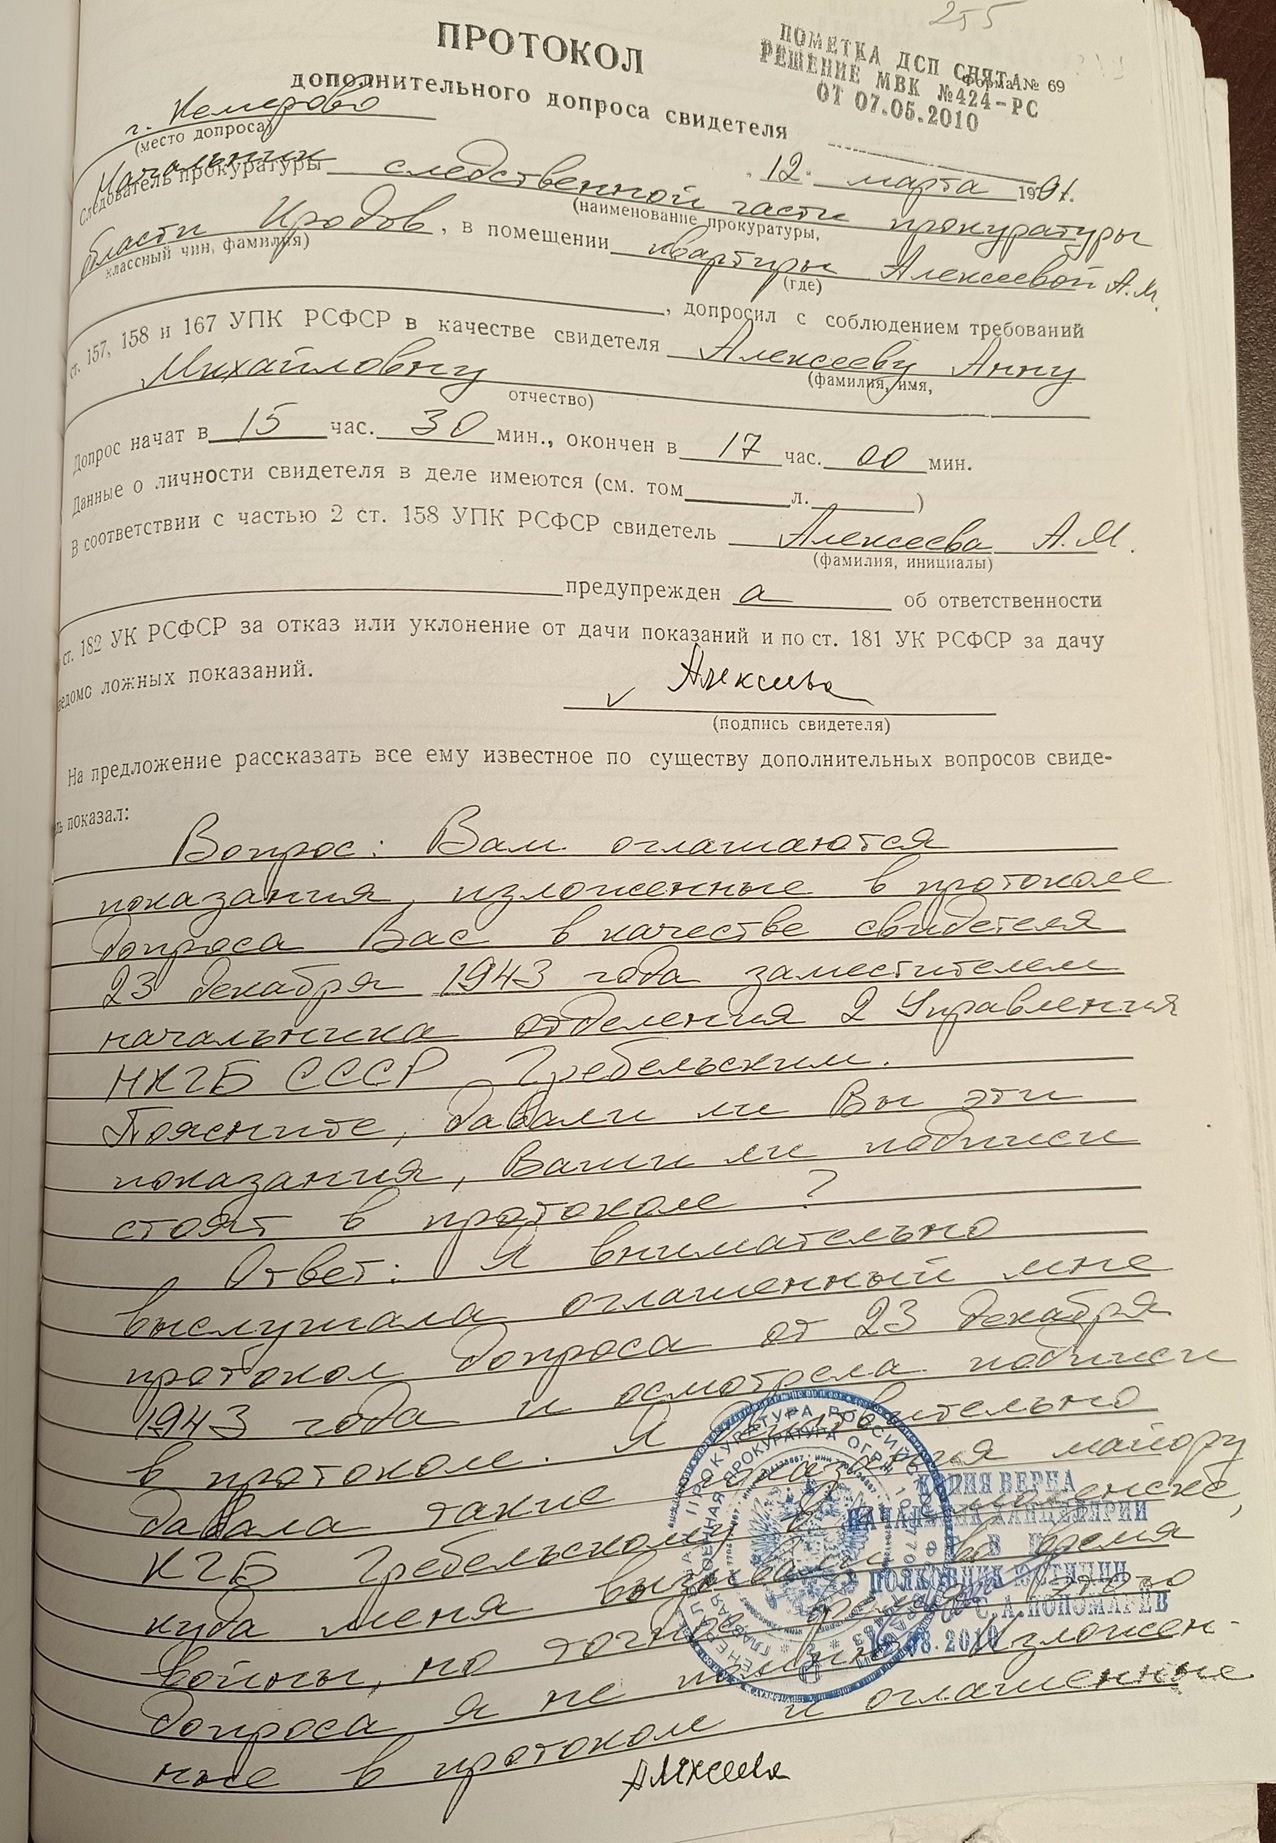 255
ПРОТОКОЛ
дополнительного допроса свидетеля
ПОМЕТКА ДСП СНЯТА
РЕШЕНИЕ МВК №424-РС
ОТ 07.05.2010
Форма № 69
г. Кемерово
(место допроса)
12 марта 1991.
Начальник следственной части прокуратуры
Следователь прокуратуры
(наименование прокуратуры,
бласти Иродов, в помещении квартиры Алексеевой А.М.
классный чин, фамилия)
(где)
, допросил с соблюдением требований
ст. 157, 158 и 167 УПК РСФСР в качестве свидетеля Алексееву Анну
(фамилия, имя,
Михайловну
отчество)
Допрос начат в 15 час. 30 мин., окончен в 17 час. 00 мин.
Данные о личности свидетеля в деле имеются (см. том л. )
В соответствии с частью 2 ст. 158 УПК РСФСР свидетель Алексеева А.М.
(фамилия, инициалы)
предупрежден а об ответственности
ст. 182 УК РСФСР за отказ или уклонение от дачи показаний и по ст. 181 УК РСФСР за дачу
ведомо ложных показаний.
Алексеева
(подпись свидетеля)
На предложение рассказать все ему известное по существу дополнительных вопросов свиде-
ль показал:
Вопрос: Вам оглашаются
показания, изложенные в протоколе
допроса Вас в качестве свидетеля
23 декабря 1943 года заместителем
начальника отделения 2 Управления
НКГБ СССР Гребельским.
Поясните, давали ли Вы эти
показания, Ваши ли подписи
стоят в протоколе?
Ответ: Я внимательно
выслушала оглашенный мне
протокол допроса от 23 декабря
1943 года и осмотрела подписи
в протоколе. Я действительно
давала такие показания майору
КГБ Гребельскому в Смоленске,
куда меня вызывали во время
войны, но точное время этого
допроса я не помню. Изложен-
ные в протоколе и оглашенные
Алексеева
ГЕНЕРАЛЬНАЯ ПРОКУРАТУРА РОССИЙСКОЙ
ГЛАВНАЯ ВОЕННАЯ ПРОКУРАТУРА
ОГРН
6
КОПИЯ ВЕРНА
НАЧАЛЬНИК КАНЦЕЛЯРИИ
ПОЛКОВНИК ЮСТИЦИИ
С.А.ПОНОМАРЕВ
08.2010